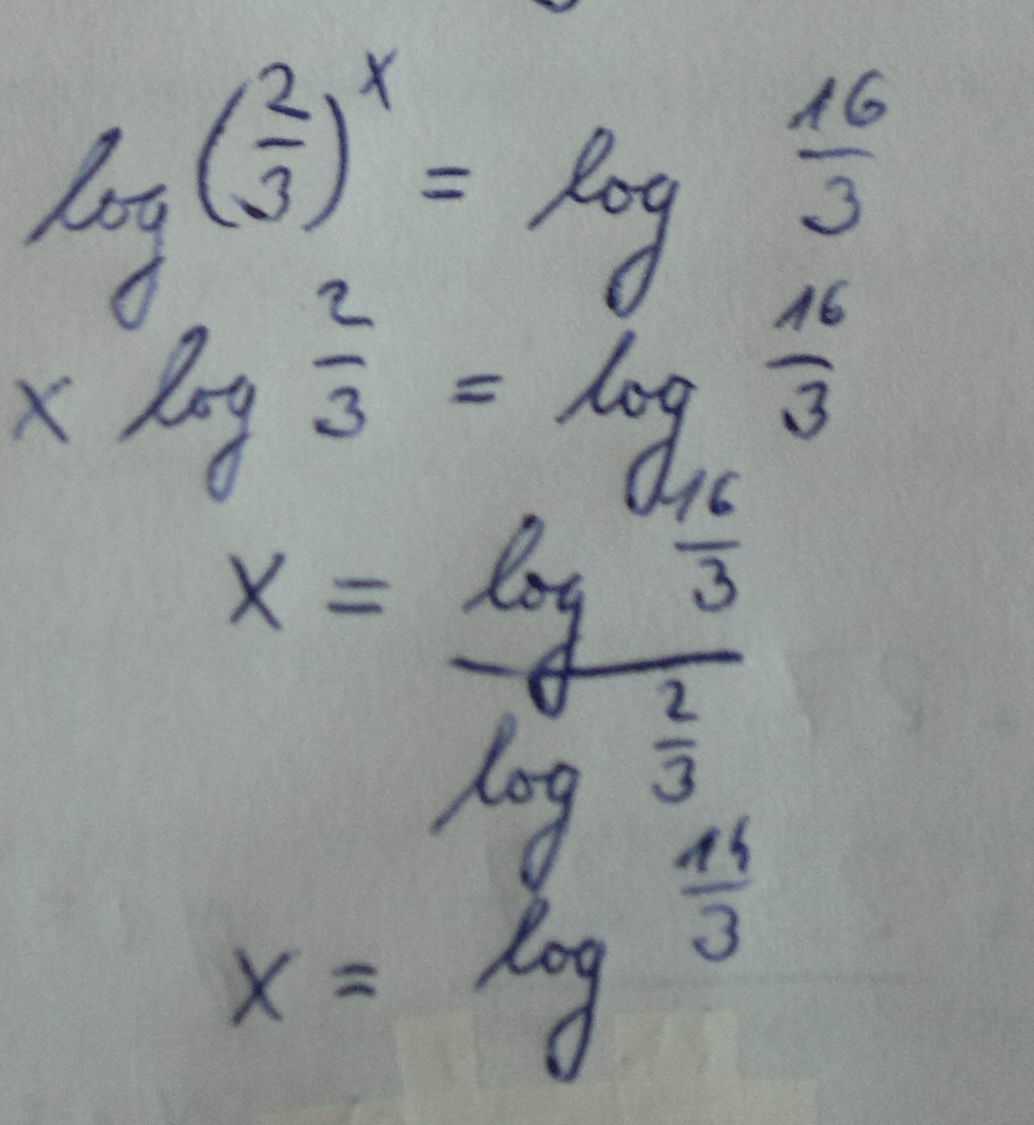 log (2/3)^x = log 16/3
x log 2/3 = log 16/3
x = (log 16/3) / (log 2/3)
x = log 14/3